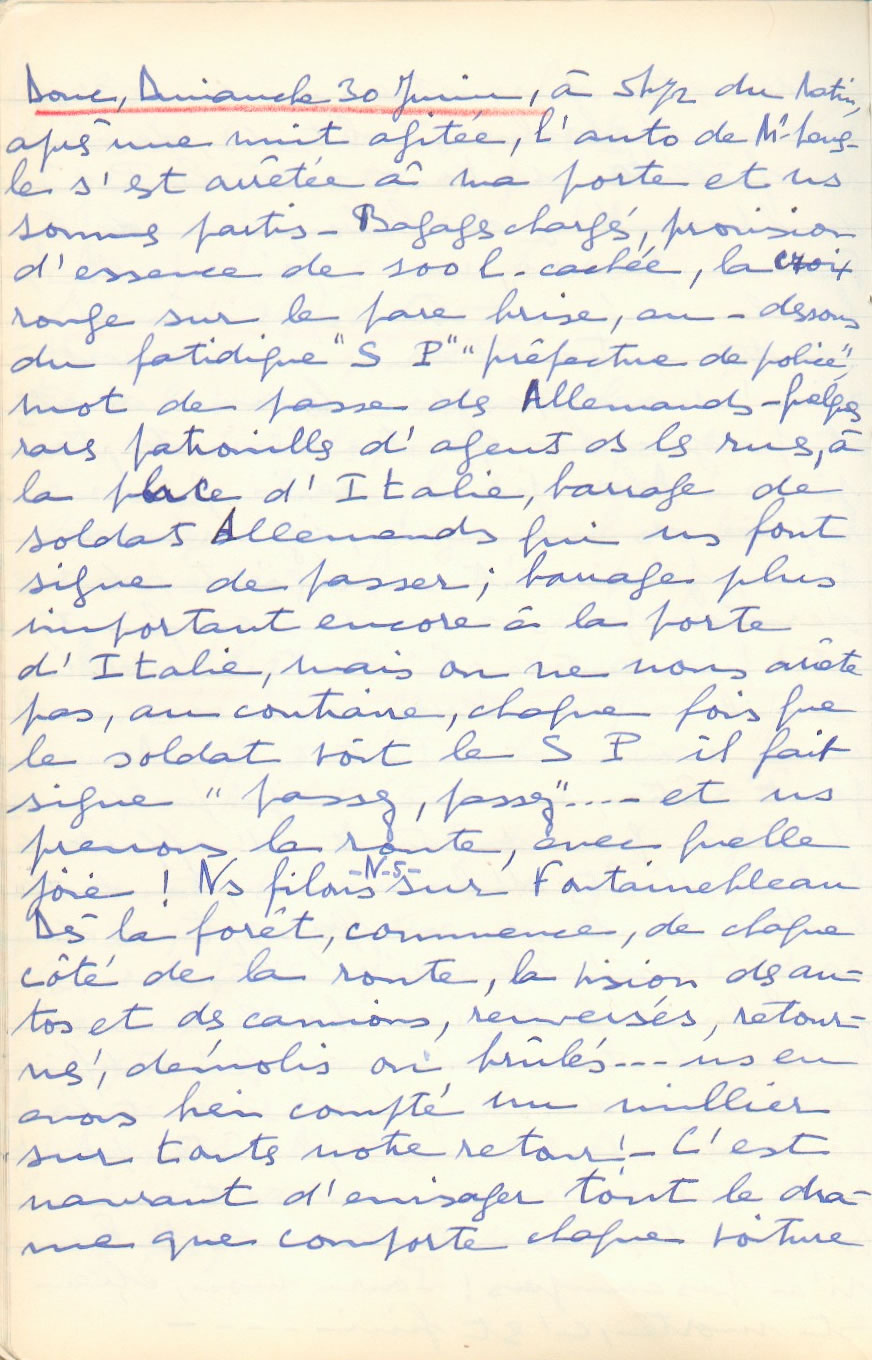 Donc, Dimanche 30 Juin, à 5h 1/2 du matin,
après une nuit agitée, l'auto de Mr
le s'est arrêtée à ma porte et ns
sommes partis - Bagages chargés, provision
d'essence de 100 l. cachée, la croix
rouge sur le pare brise, au-dessous
du fatidique "S P" "préfecture de police",
mot de passe des Allemands - qelqes
rares patrouilles d'agents ds les rues, à
la place d'Italie, barrage de
soldats Allemands qui ns font
signe de passer ; barrage plus
important encore à la porte
d'Italie, mais on ne nous arrête
pas, au contraire, chaque fois que
le soldat voit le S P il fait
signe "passez, passez".... et ns
prenons la route, avec quelle
joie ! Ns filons -N.5- sur Fontainebleau
Dès la forêt, commence, de chaque
côté de la route, la vision des au-
tos et des camions, renversés, retour-
nés, démolis ou brûlés --- ns en
avons bien compté un millier
sur tout notre retour ! - C'est
navrant d'envisager tout le dra-
me que comporte chaque voiture